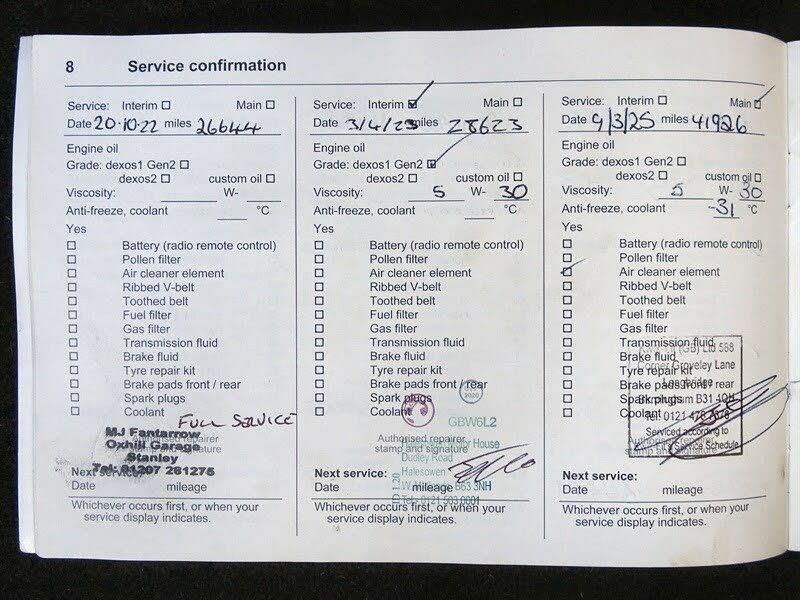 8 Service confirmation
Service: Interim ☐ Main ☐
Date 20·10·22 miles 26644
Engine oil
Grade: dexos1 Gen2 ☐
dexos2 ☐ custom oil ☐
Viscosity: W-
Anti-freeze, coolant °C
Yes
☐ Battery (radio remote control)
☐ Pollen filter
☐ Air cleaner element
☐ Ribbed V-belt
☐ Toothed belt
☐ Fuel filter
☐ Gas filter
☐ Transmission fluid
☐ Brake fluid
☐ Tyre repair kit
☐ Brake pads front / rear
☐ Spark plugs
☐ Coolant
FULL SERVICE
MJ Fantarrow
Authorised repairer
Oxhill Garage
Stanley
Tel: 01207 281275
Next service:
Date mileage
Whichever occurs first, or when your
service display indicates.
Service: Interim ☑ Main ☐
Date 3/4/23 miles 28623
Engine oil
Grade: dexos1 Gen2 ☑
dexos2 ☐ custom oil ☐
Viscosity: 5 W- 30
Anti-freeze, coolant °C
Yes
☐ Battery (radio remote control)
☐ Pollen filter
☐ Air cleaner element
☐ Ribbed V-belt
☐ Toothed belt
☐ Fuel filter
☐ Gas filter
☐ Transmission fluid
☐ Brake fluid
☐ Tyre repair kit
☐ Brake pads front / rear
☐ Spark plugs
☐ Coolant
2020
GBW6L2
Authorised repairer
stamp and signature
House
Dudley Road
Halesowen
B63 3NH
Tel: 0121 503 0001
TD 1.20
Next service:
Date mileage
Whichever occurs first, or when your
service display indicates.
Service: Interim ☐ Main ☑
Date 9/3/25 miles 41926
Engine oil
Grade: dexos1 Gen2 ☐
dexos2 ☐ custom oil ☐
Viscosity: 5 W- 30
Anti-freeze, coolant -31 °C
Yes
☐ Battery (radio remote control)
☐ Pollen filter
☑ Air cleaner element
☐ Ribbed V-belt
☐ Toothed belt
☐ Fuel filter
☐ Gas filter
☐ Transmission fluid
☐ Brake fluid
☐ Tyre repair kit
☐ Brake pads front / rear
☐ Spark plugs
☐ Coolant
(GB) Ltd 568
Corner Groveley Lane
Longbridge
Birmingham B31 4QH
Tel: 0121
Serviced according to
Service Schedule
Authorised repairer
stamp and signature
Next service:
Date mileage
Whichever occurs first, or when your
service display indicates.